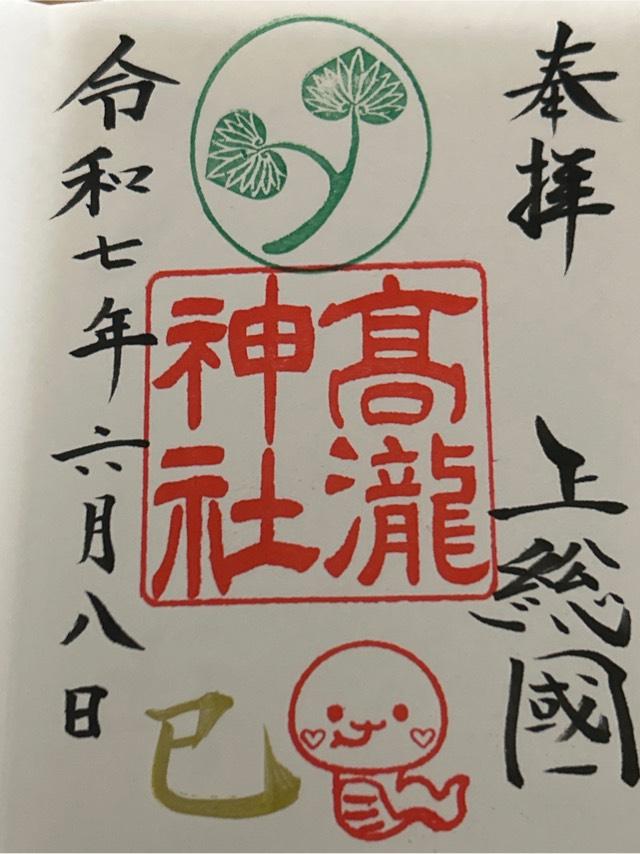 奉拝
上総國一
髙瀧
神社
巳
令和七年六月八日